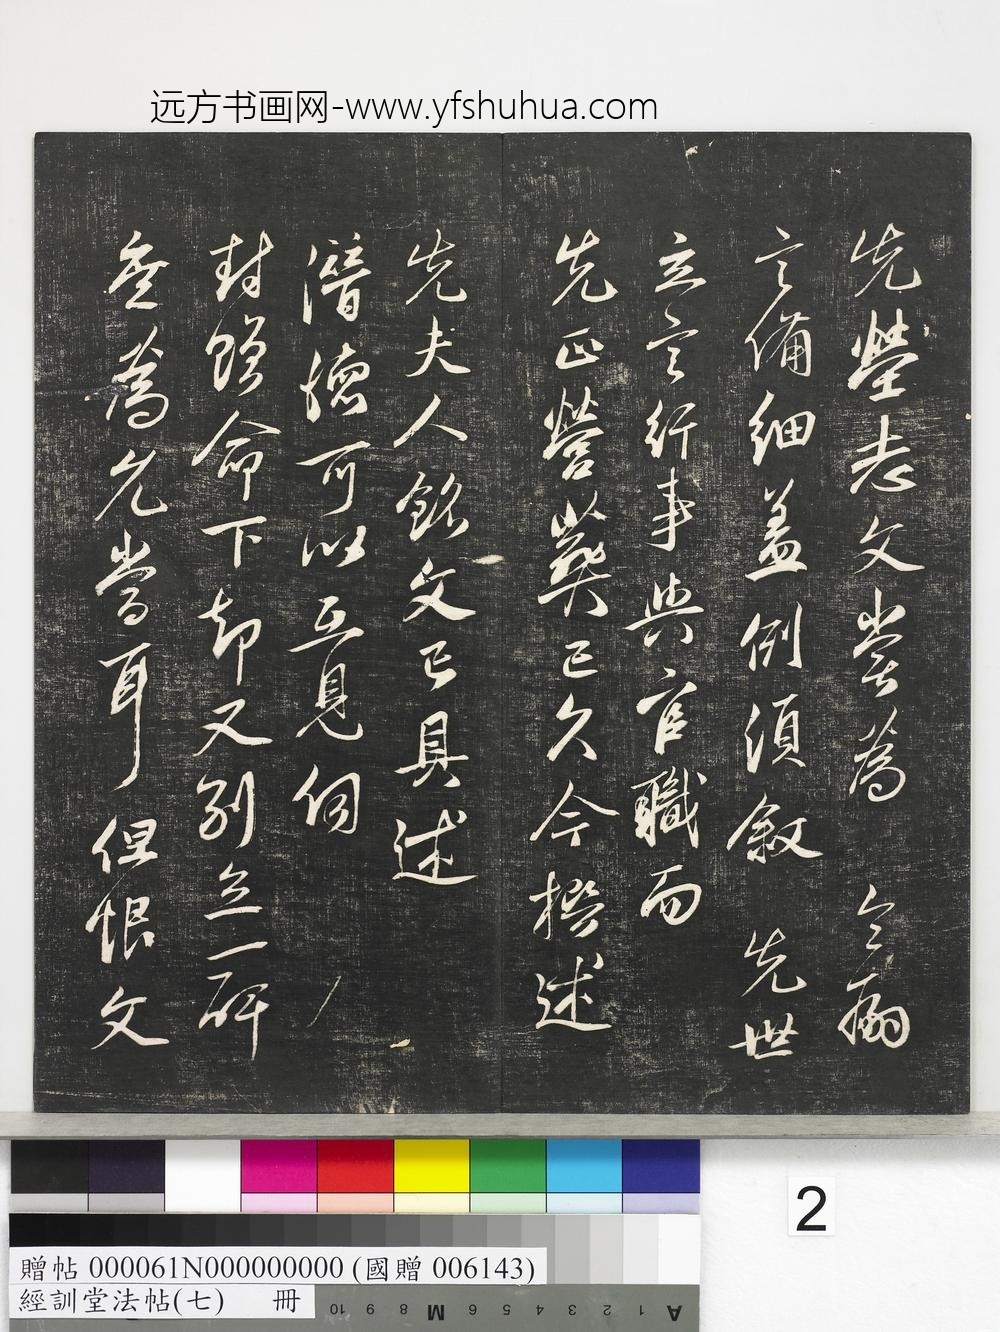 远方书画网-www.yfshuhua.com
先塋志文嘗為 令嗣
言備細蓋例須叙 先世
立言行事與官職而
先正營葬已久今撰述
先夫人銘文已具述
潛德可以互見伺
封贈命下却又別立一碑
無為允當耳但恨文
2
贈帖 000061N000000000 (國贈 006143)
經訓堂法帖(七) 冊
10 9 8 M 6 5 4 3 2 1 A